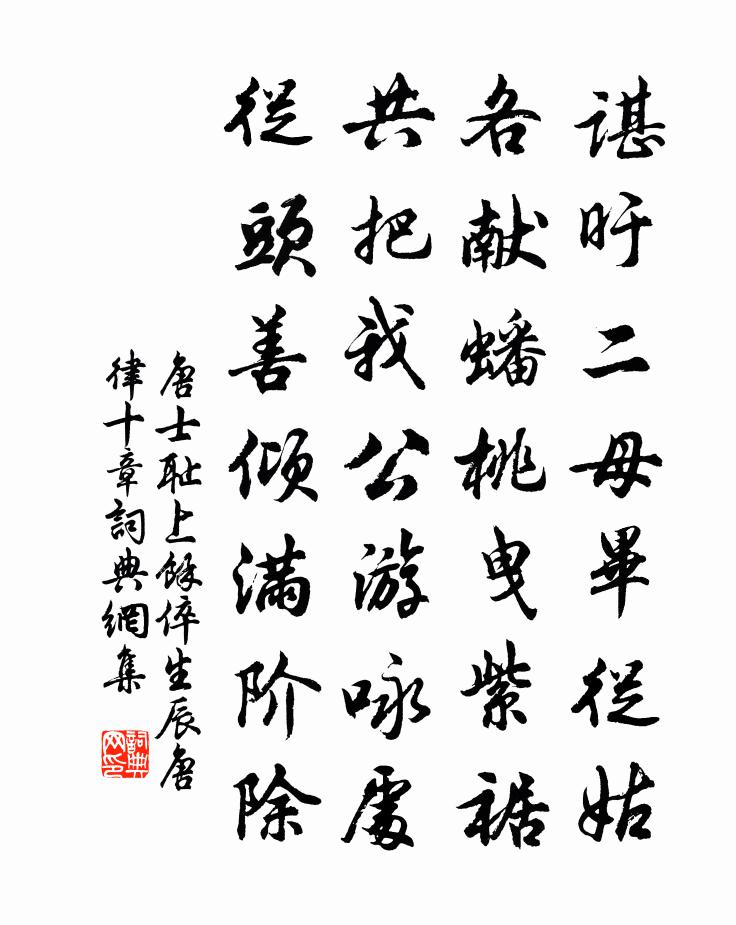 諶盱二母畢從姑
各献蟠桃曳紫裾
共把我公游咏處
從頭善傾滿阶除
唐士耻上餘倅生辰唐
律十章詞典網集
詞典网印